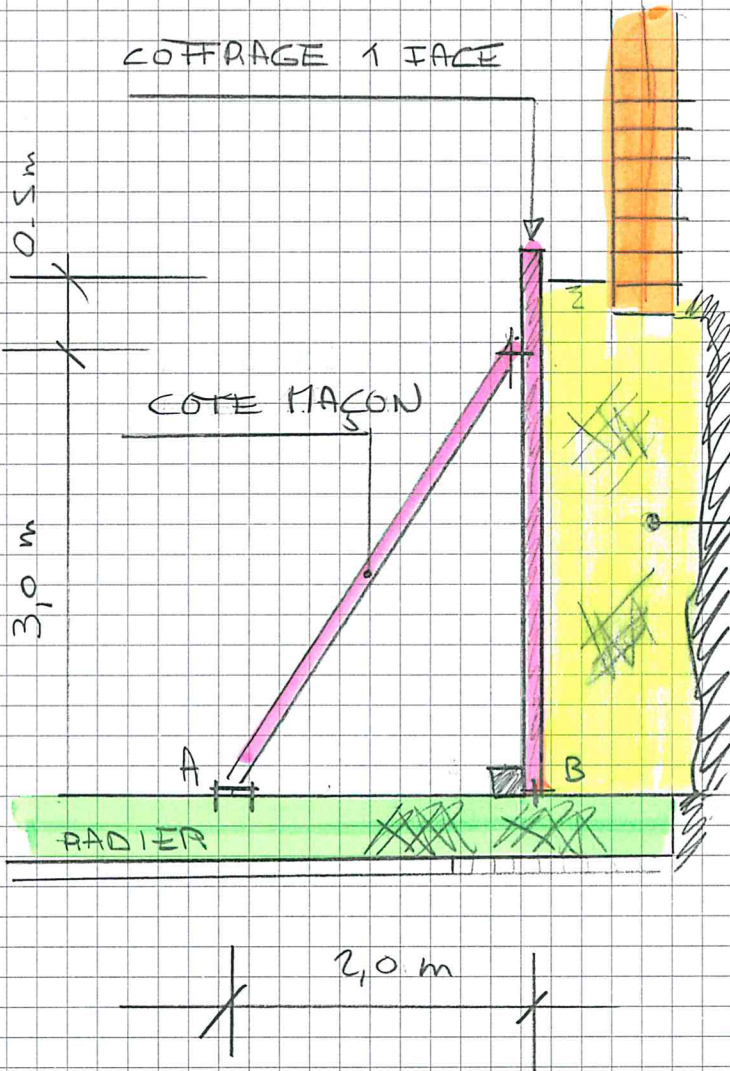 COFFRAGE 1 FACE
0.5m
COTE MAÇON
3,0 m
A
B
RADIER
2,0 m